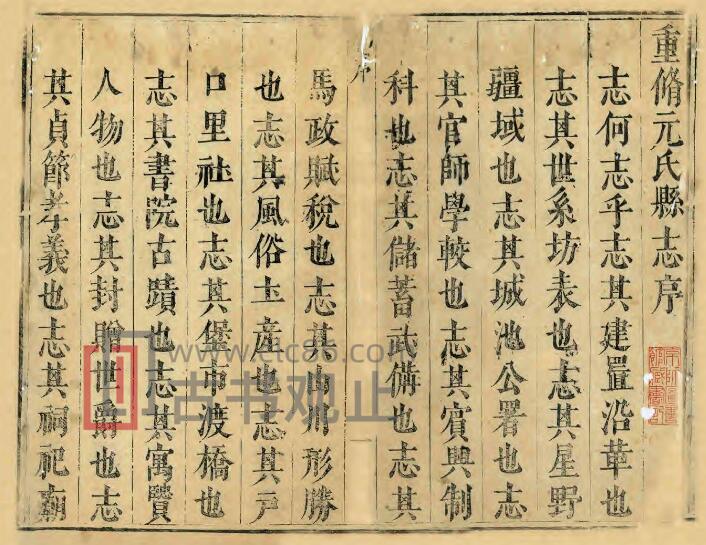 重脩元氏縣志序
志何志乎志其建置沿革也
志其世系坊表也志其星野
疆域也志其城池公署也志
其官師學較也志其賓興制
科也志其儲蓄武備也志其
序
一
馬政賦稅也志其山川形勝
也志其風俗土產也志其戸
口里社也志其堡市渡橋也
志其書院古蹟也志其寓賢
人物也志其封贈世爵也志
其貞節孝義也志其祠祀廟
www.ctc86.com
古书观止